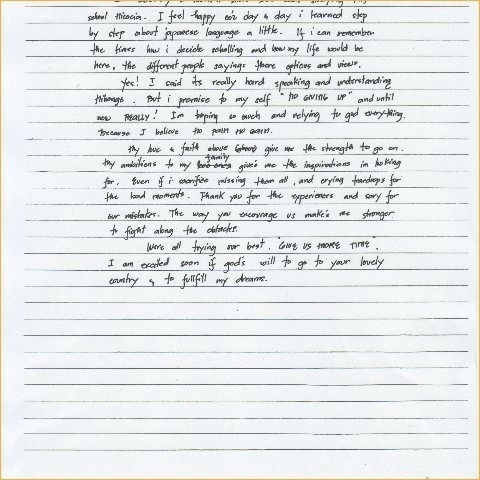 school Miseria. I feel happy coz day & day i learned step
by step about japanese language a little. If i can remember
the times how i decide scholling and how my life would be
here, the different people sayings there options and views.
Yes! I said its really hard speaking and understanding
things. But i promise to my self "NO GIVING UP" and until
now REALLY! Im hoping so much and relying to god everything.
Because I believe no pain no gain.
My love & faith above give me the strength to go on.
My ambitions to my family give's me the inspirations im looking
for. Even if i sacrifice missing them all, and crying teardrops for
the load moments. Thank you for the experiences and sory for
our mistakes. The way you encourage us make's me stronger
to fight along the obstacles.
Were all trying our best. GIVE US MORE TIME.
I am excited soon if god's will to go to your lovely
country & to fullfill my dreams.